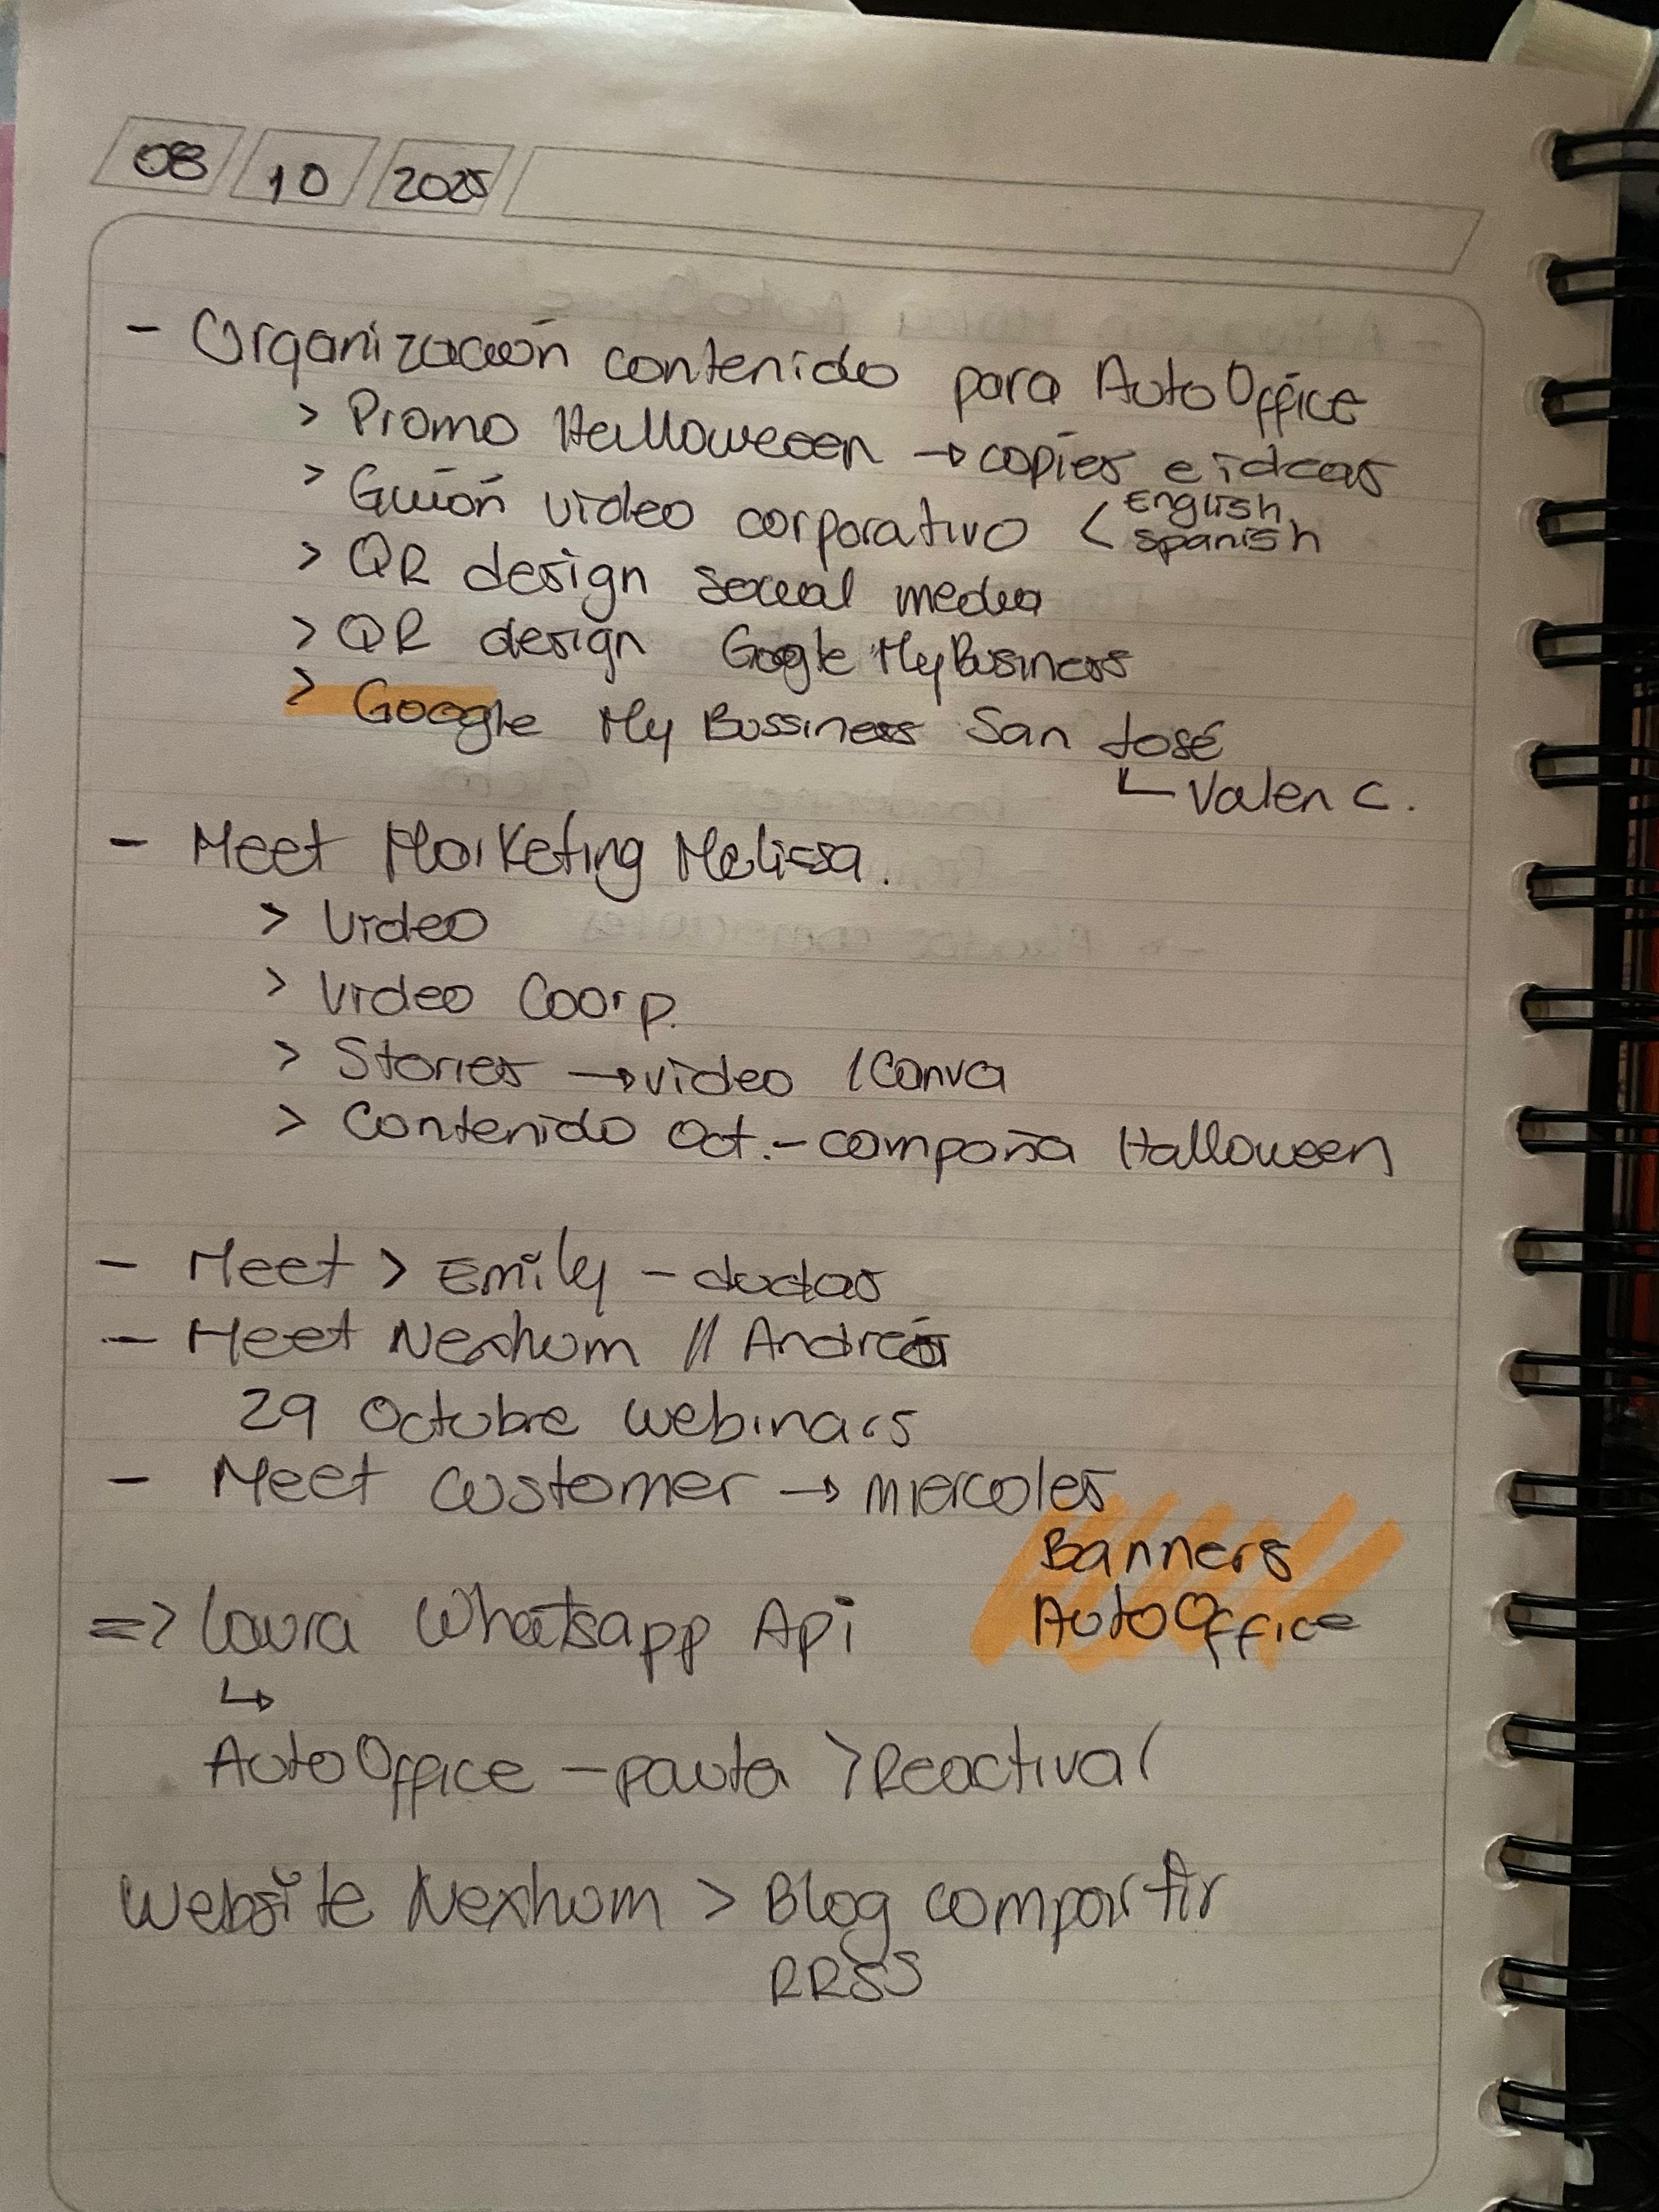 08 10 2025
- Organización contenido para AutoOffice
> Promo Halloweeen → copies e ideas
> Guión video corporativo < English
Spanish
> QR design social media
> QR design Google MyBusiness
> Google My Bussiness San José
Valen C.
- Meet Marketing Melissa.
> Video
> Video Coorp.
> Stories → video / Canva
> Contenido Oct. - campaña Halloween
- Meet > Emily - dudas
- Meet Nexhum // Andrea
29 Octubre webinars
- Meet Customer → miercoles
Banners
AutoOffice
=> Laura Whatsapp Api
↳
AutoOffice - pauta > Reactivar
Website Nexhum > Blog compartir
RRSS